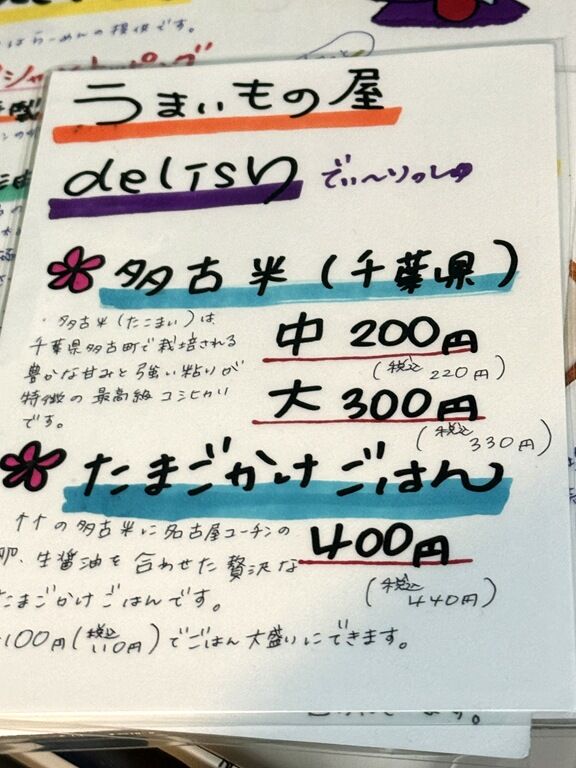 はらーめんの提供です。
うまいもの屋
delish でぃ〜りっしゅ
多古米(千葉県)
・多古米(たこまい)は、
千葉県多古町で栽培される
豊かな甘みと強い粘りが
特徴の最高級コシヒカリ
です。
中 200円
(税込220円)
大 300円
(税込330円)
たまごかけごはん
↑↑の多古米に名古屋コーチンの
卵、生醤油を合わせた贅沢な
たまごかけごはんです。
400円
(税込440円)
+100円(税込110円)でごはん大盛りにできます。